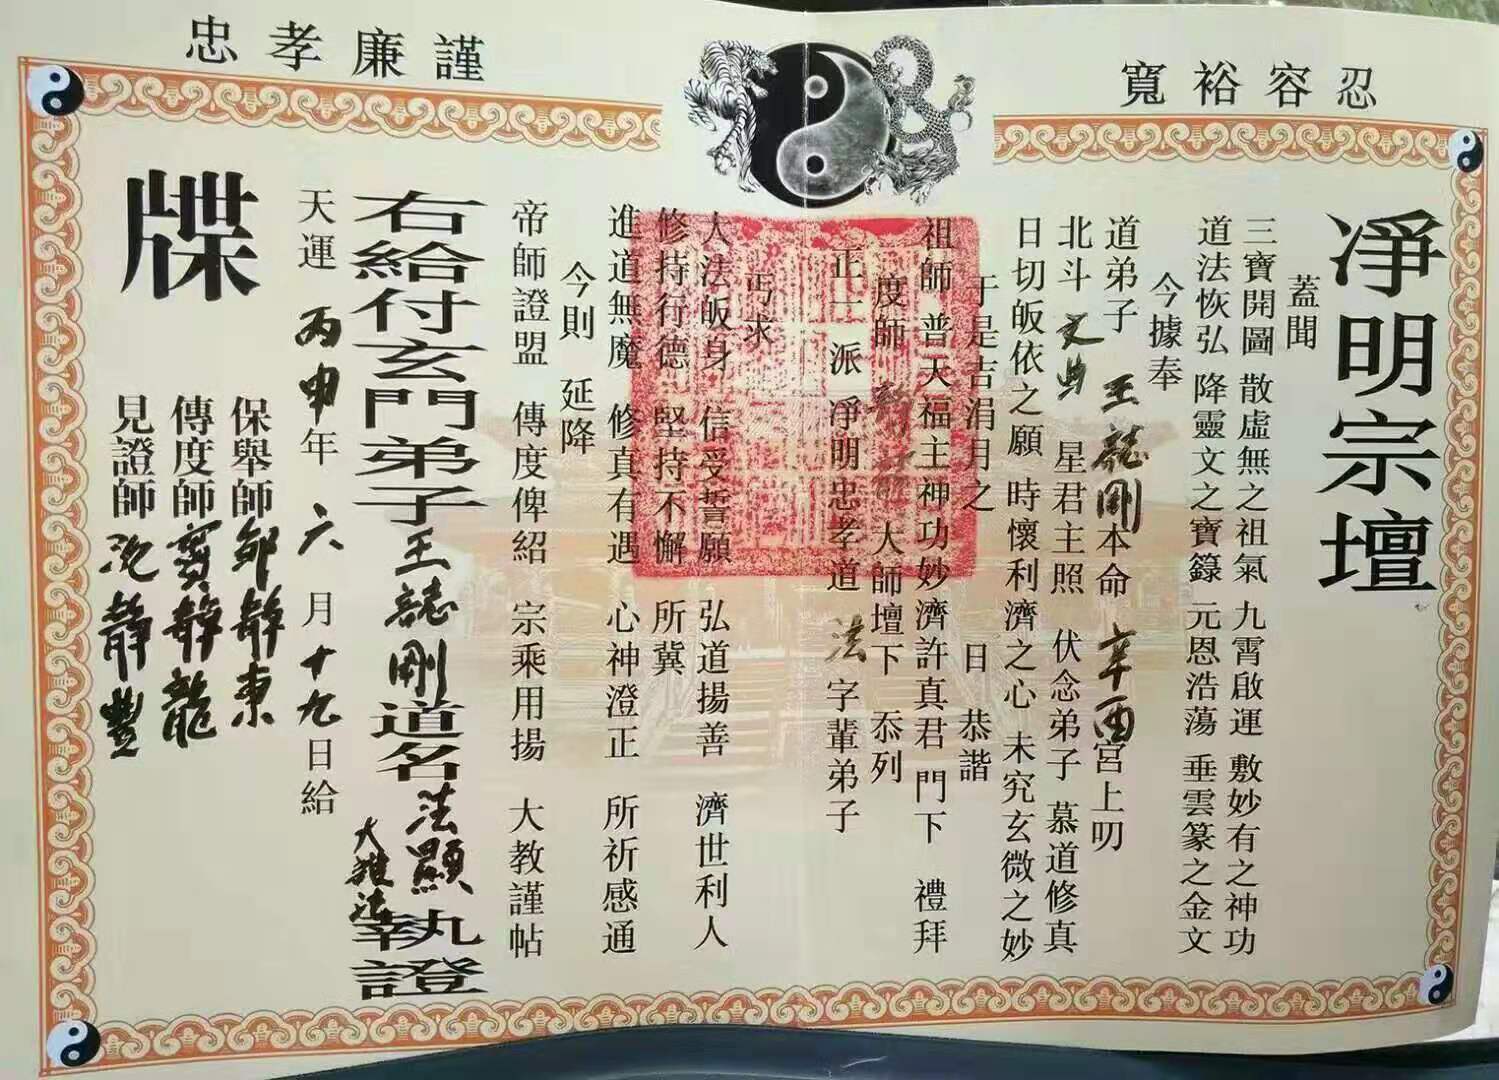 忠孝廉謹
寬裕容忍
凈明宗壇
蓋聞
三寶開圖 散虛無之祖氣 九霄啟運 敷妙有之神功
道法恢弘 降靈文之寶籙 元恩浩蕩 垂雲篆之金文
今據奉
道弟子 王誌剛本命 辛酉宮上叨
北斗 文曲 星君主照 伏念弟子 慕道修真
日切皈依之願 時懷利濟之心 未究玄微之妙
于是吉涓月之 日 恭諧
祖師 普天福主神功妙濟許真君 門下 禮拜
度師 大師壇下 忝列
正一派 凈明忠孝道 法 字輩弟子
丐求
大法皈身 信受誓願 弘道揚善 濟世利人
修持行德 堅持不懈 所冀
進道無魔 修真有遇 心神澄正 所祈感通
今則 延降
帝師證盟 傳度俾紹 宗乘用揚 大教謹帖
右給付玄門弟子王誌剛道名法顯執證
大雅法
天運 丙申年 六 月 十九日給
保舉師 鄒靜東
傳度師 靜龍
見證師 沈靜豐
牒